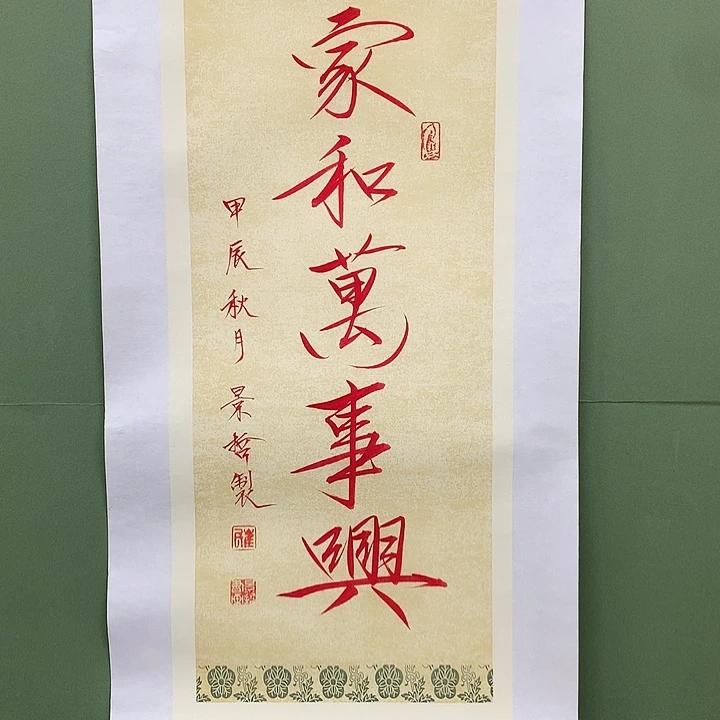 家和萬事興
甲辰秋月 景哲製